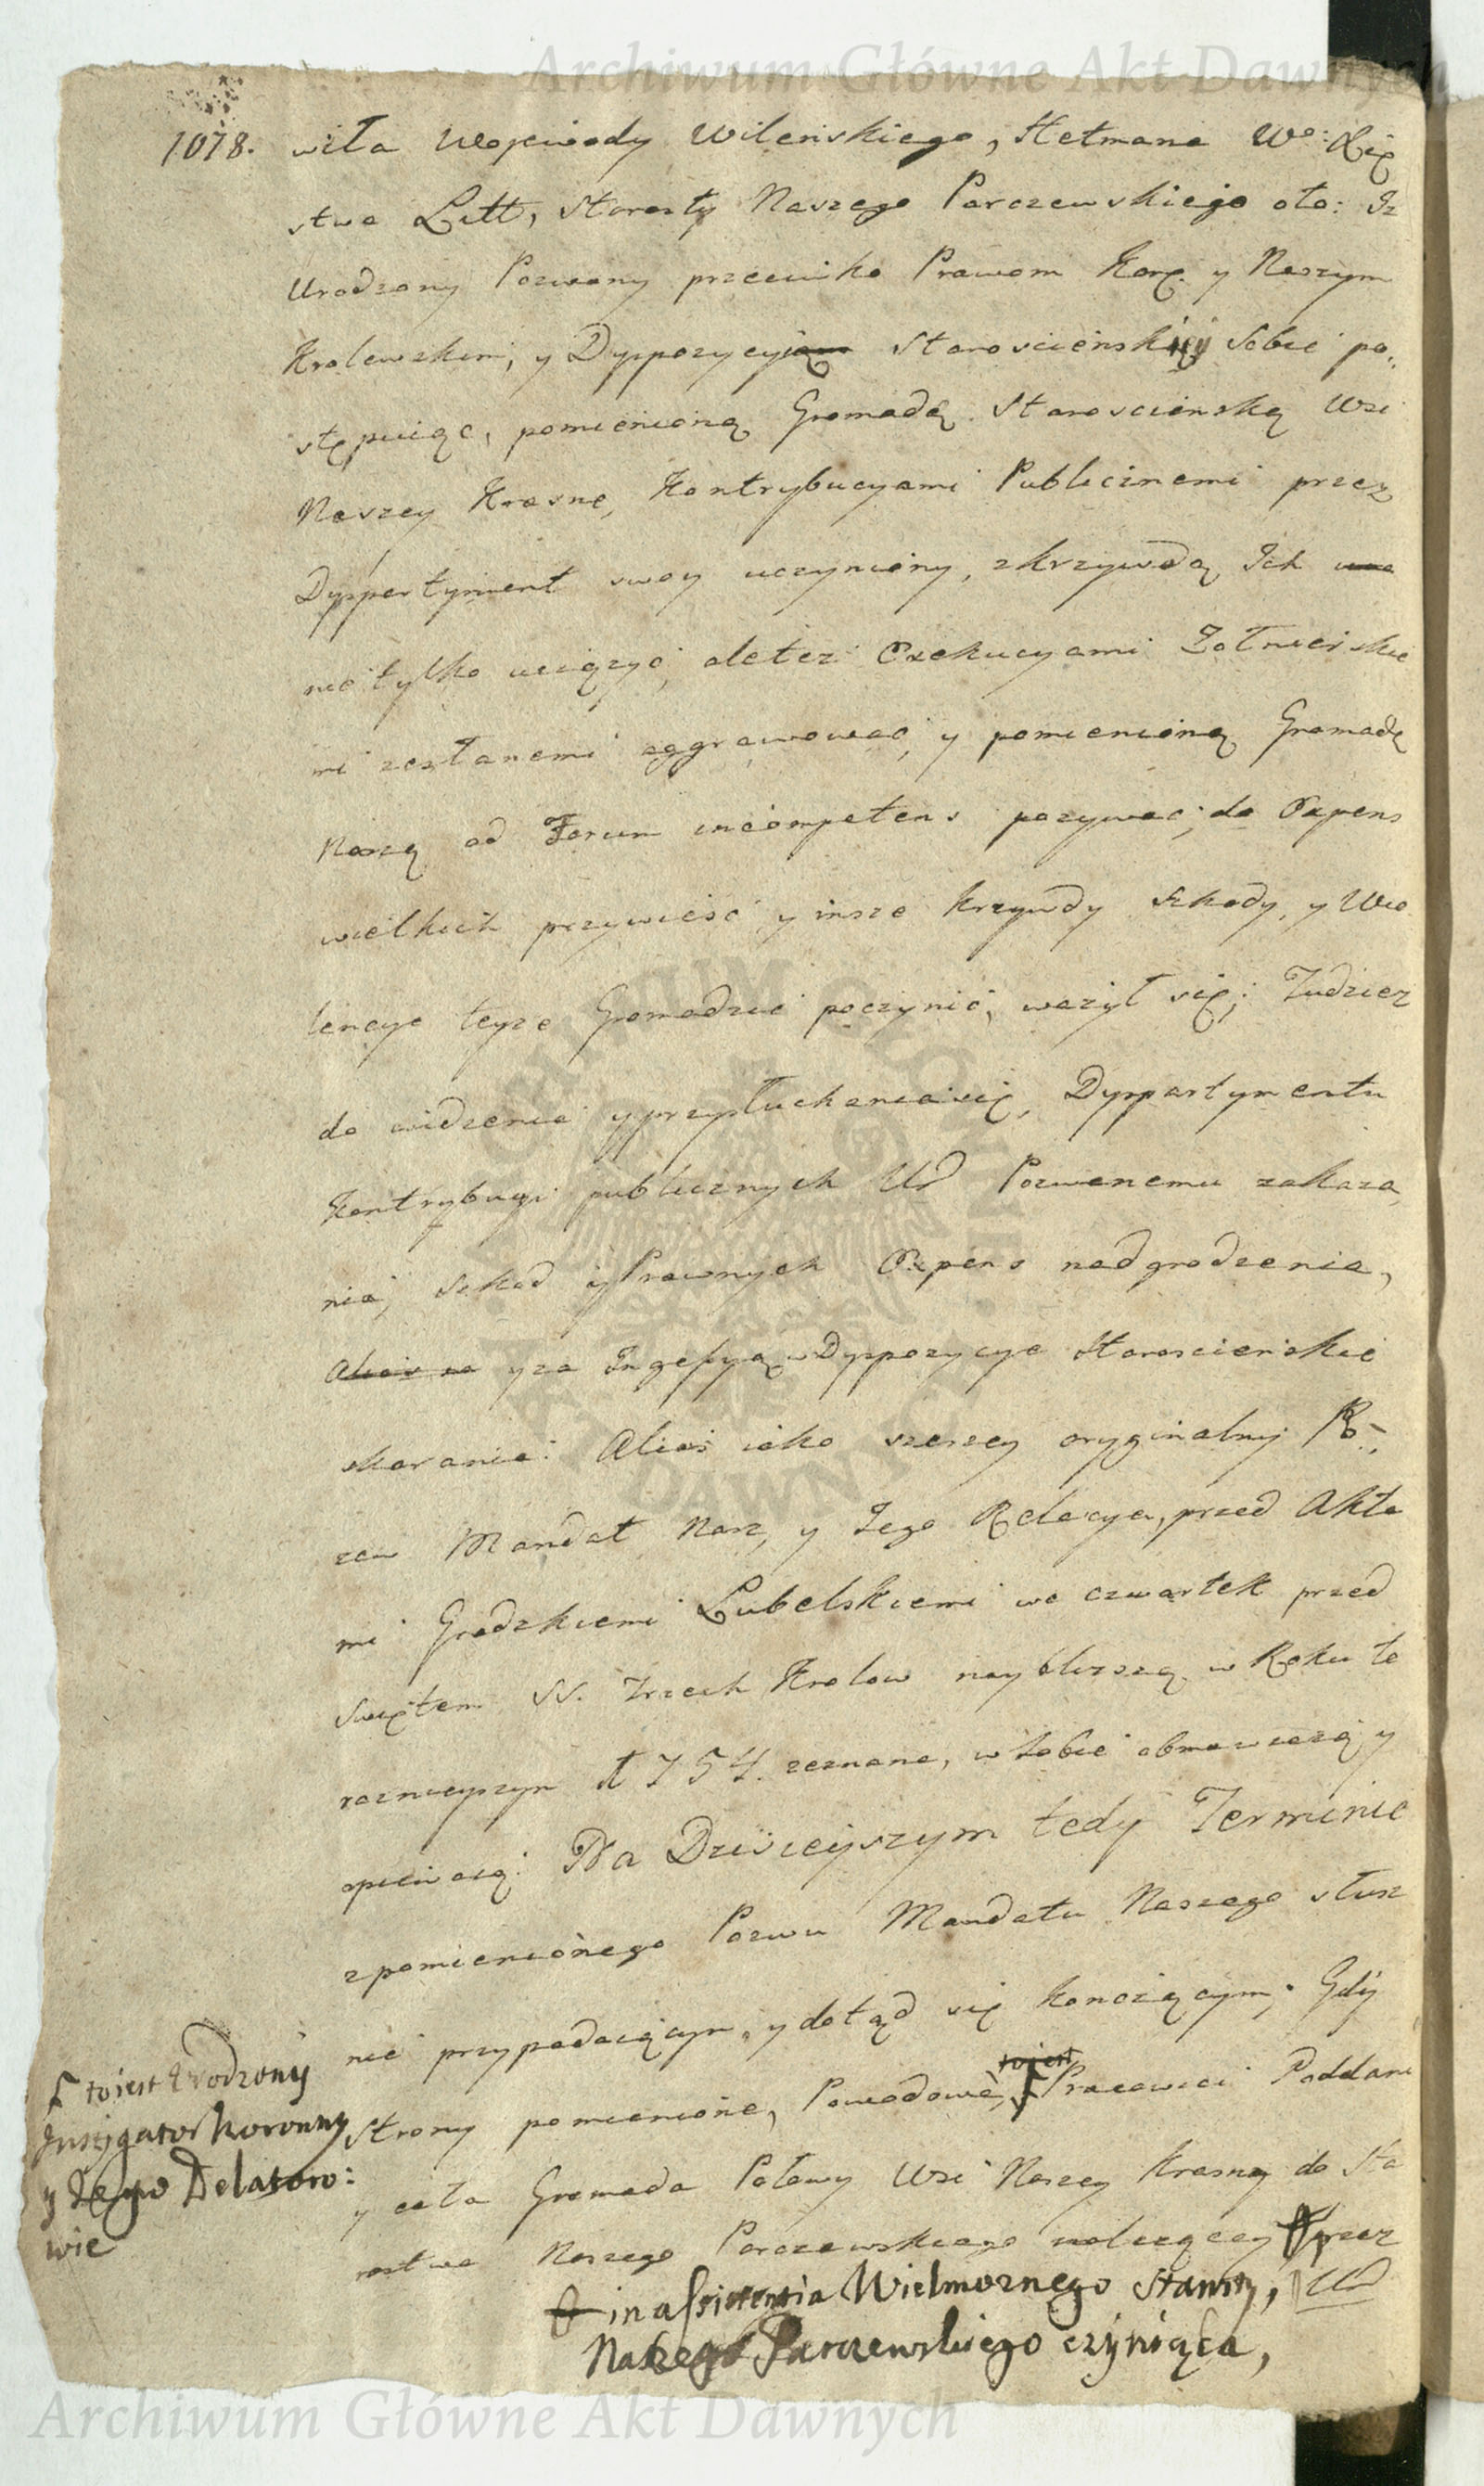 Archiwum Główne Akt Dawnych
1078. wiła Woiewody Wilenskiego, Hetmana Wo: Xię
stwa Litt, Starosty Naszego Parczewskiego oto: Iz
Urodzony Pozwany przeciwko Prawom Kor. y Naszym
Krolewskim, y Dyspozycyi Staroscienskiey Sobie po,
stępuiąc, pomienioną Gromadę Staroscienską Wsi
Naszey Krasne, Kontrybucyami Publicznemi przez
Dyspartyment swoy uczyniony, z krzywdą Ich
nie tylko uciązyć, ale też Exekucyami Zołnierskie
mi zesłanemi aggrawować, y pomienioną Gromadę
Naszą ad Forum incompetens pozywać, do Expens
wielkich przywieść y insze krzywdy szkody, y Wio
lencye teyze Gromadzie poczynić, ważył się; Tudziez
do widzenia y przysłuchania się, Dyspartymentu
Kontrybucyi publicznych Ur Pozwanemu zakaza
nia, szkod y Prawnych Expens nadgrodzenia,
Alias na y za Ingessyą w Dyspozycye Staroscienskie
skarania: Alias iako szerzey oryginalny Po,
zew Mandat Nasz, y Iego Relacya, przed Akta
mi Grodzkiemi Lubelskiemi we czwartek przed
Swiętem SS. Trzech Krolow naybliższą w Roku te
raznieyszym 1754. zeznana, w Sobie obmawiaią y
opiewaią: Na Dzisieyszym tedy Terminie
z pomienionego Pozwu Mandatu Naszego słusz
nie przypadaiącym, y dotąd się konczącym; Gdy
toiest
Strony pomienione, Powodowe, Pracowici Poddani
toiest Urodzony
Instygator Koronny
y Jego Delatoro:
wie
y cała Gromada Połowy Wsi Naszey Krasny do Sta
rostwa Naszego Parczewskiego należącey przez
in assistentia Wielmoznego Starosty, Ur
Naszego Parczewskiego czyniąca,
Archiwum Główne Akt Dawnych